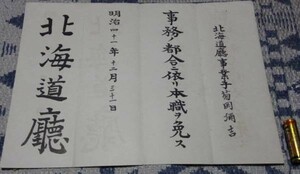 北海道廳事業手 菊岡彌吉
事務ノ都合ニ依リ本職ヲ免ス
明治四十一年十二月三十一日
北海道廳